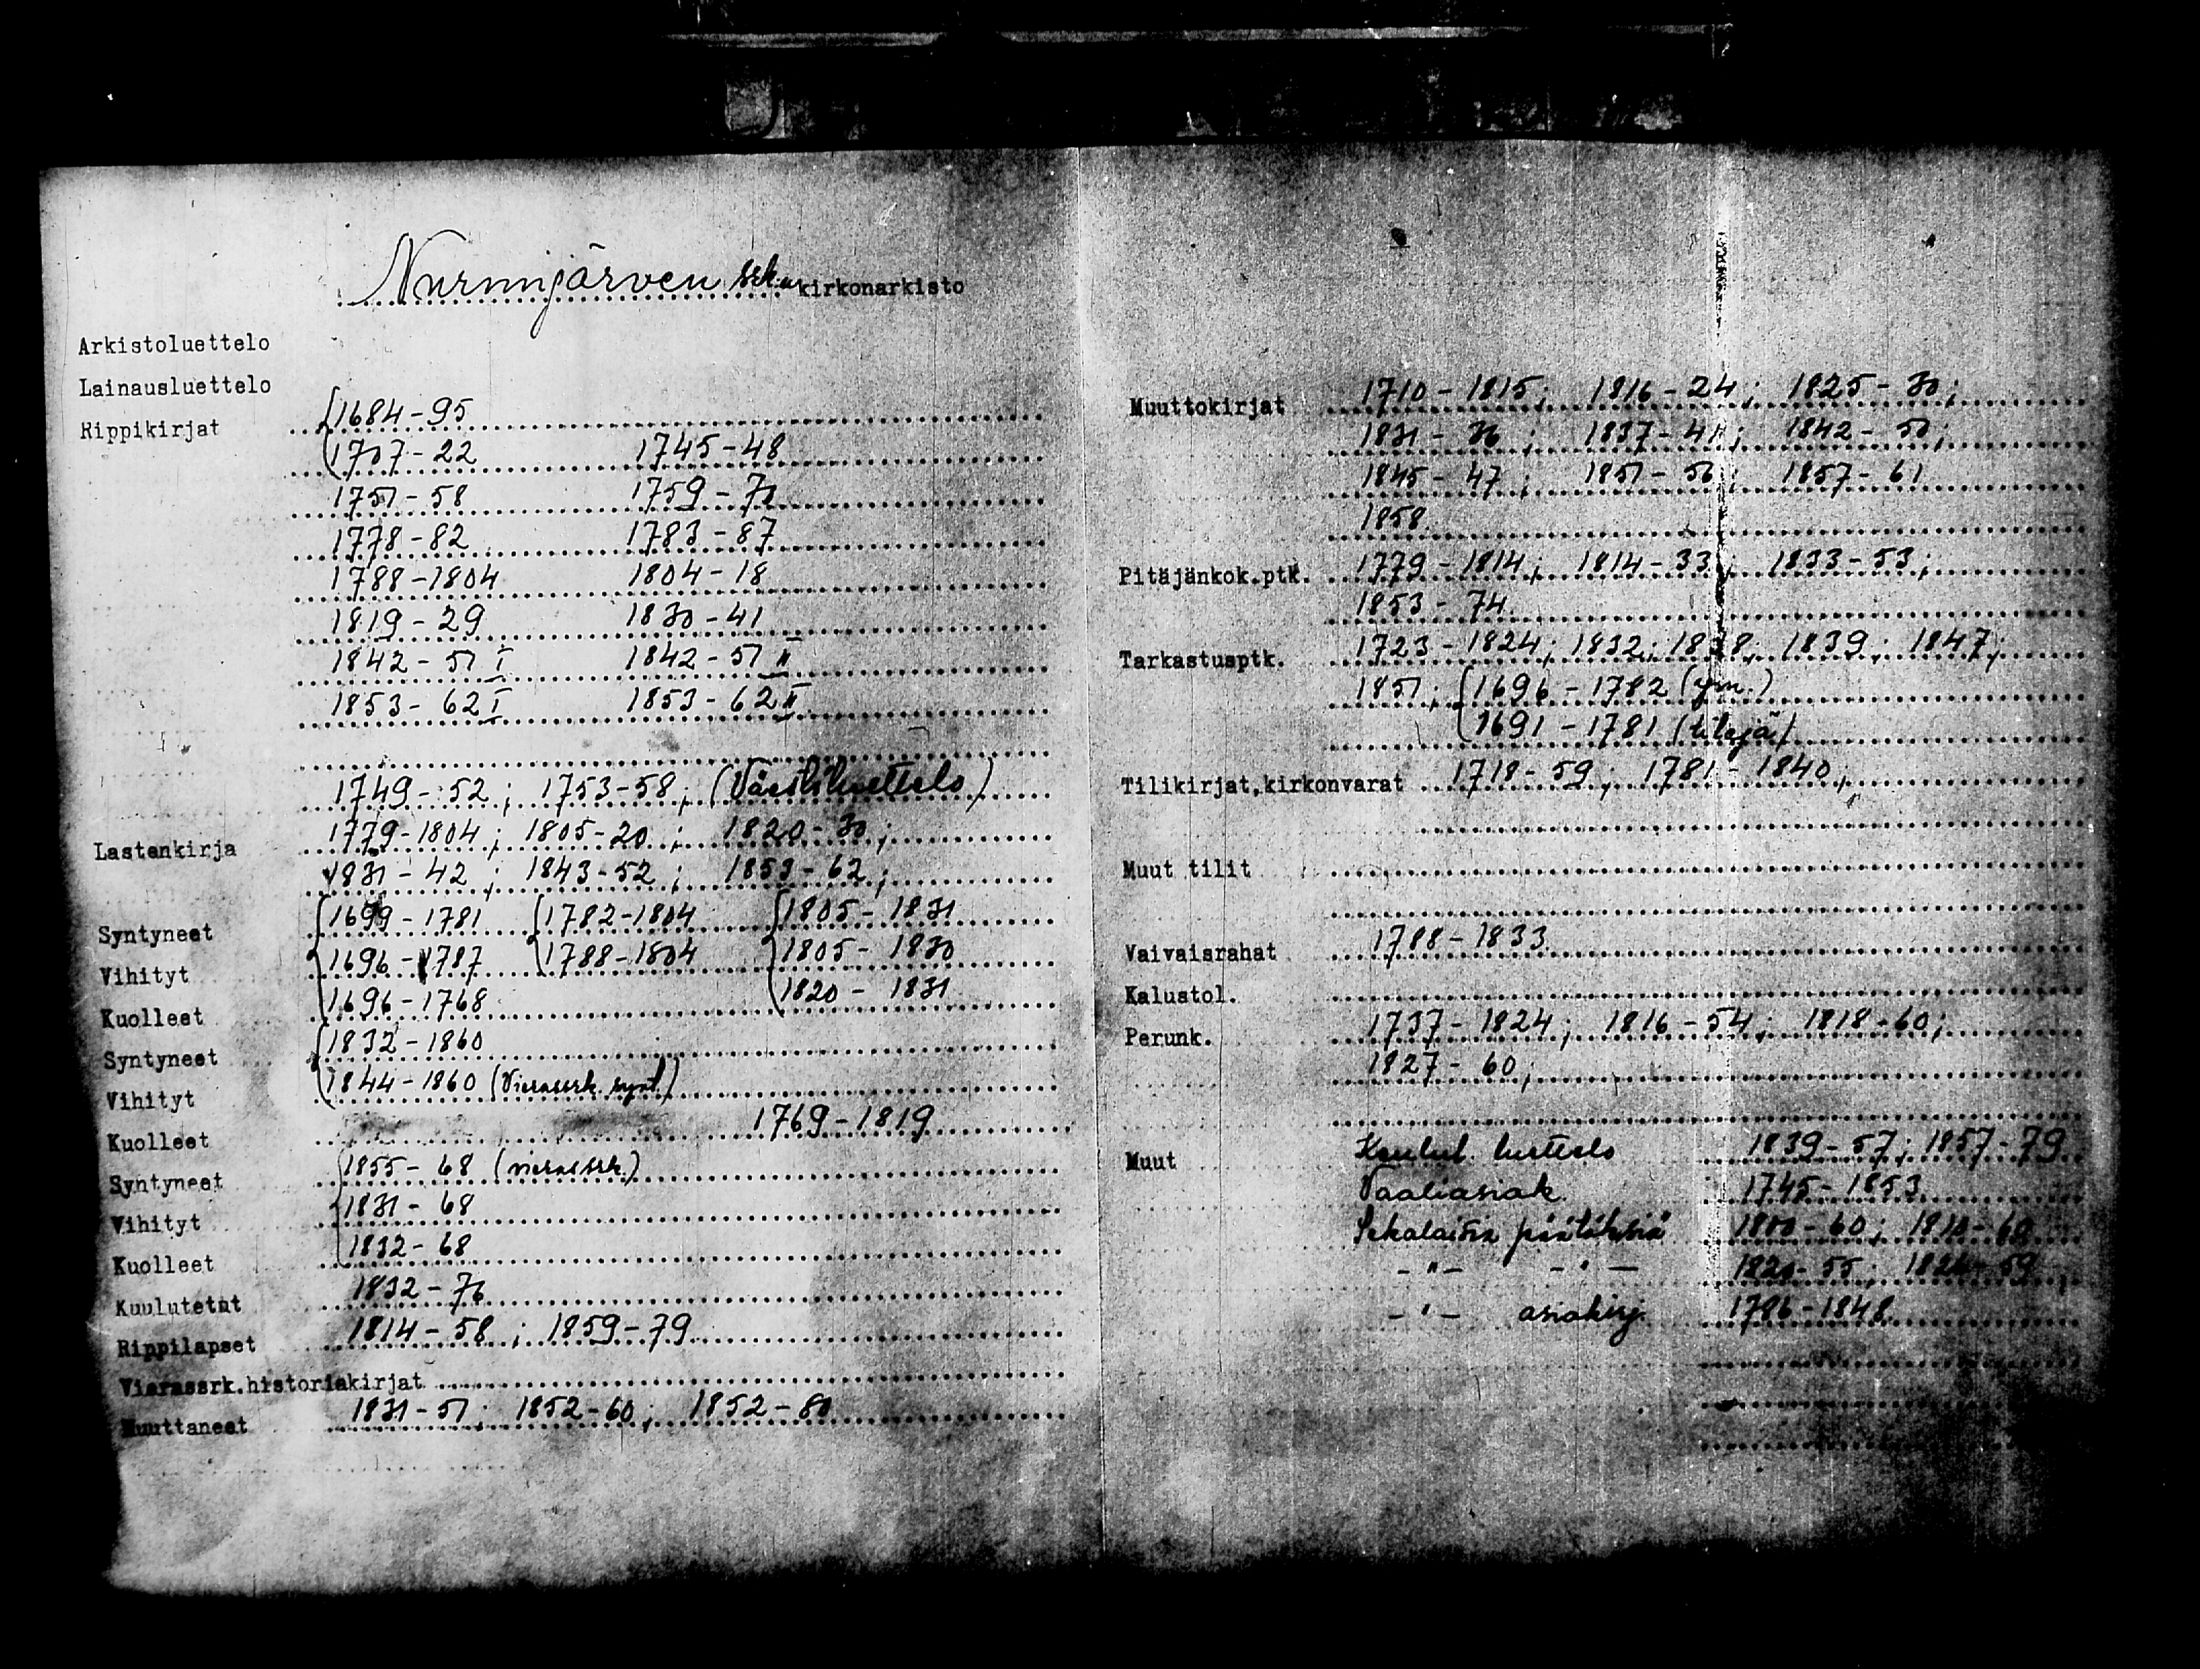 Nurmijärven srk:n kirkonarkisto
Arkistoluettelo
Lainausluettelo
Rippikirjat 1684-95
1707-22 1745-48
1751-58 1759-71
1778-82 1783-87
1788-1804 1804-18
1819-29 1830-41
1842-51 I 1842-51 II
1853-62 I 1853-62 II
1749-52; 1753-58; (Väestöluettelo)
Lastenkirja 1779-1804; 1805-20; 1820-30;
1831-42; 1843-52; 1853-62;
Syntyneet 1699-1781 1782-1804 1805-1831
Vihityt 1696-1787 1788-1804 1805-1830
Kuolleet 1696-1768 1820-1831
Syntyneet 1832-1860
Vihityt 1844-1860 (Vierassrk. synt.)
Kuolleet 1769-1819
Syntyneet 1855-68 (vierassrk.)
Vihityt 1831-68
Kuolleet 1832-68
Kuulutetut 1832-76
Rippilapset 1814-58; 1859-79
Vierassrk.historiakirjat
Muuttaneet 1831-51; 1852-60; 1852-80
Muuttokirjat 1710-1815; 1816-24; 1825-30;
1831-36; 1837-41; 1842-50;
1845-47; 1851-56; 1857-61
1858
Pitäjänkok.ptk. 1779-1814; 1814-33; 1833-53;
1853-74
Tarkastusptk. 1723-1824; 1832; 1838; 1839; 1847;
1851; 1696-1782 (ym.)
1691-1781 (tilejä)
Tilikirjat,kirkonvarat 1718-59; 1781-1840;
Muut tilit
Vaivaisrahat 1788-1833
Kalustol.
Perunk. 1737-1824; 1816-54; 1818-60;
1827-60;
Muut Kuulut. luettelo 1839-57; 1857-79
Vaaliasiak. 1745-1853
Sekalaisia päätöksiä 1800-60; 1810-60
-"- -"- 1820-55; 1826-59
-"- asiakirj. 1786-1848